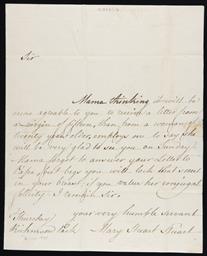 Sir
Mama thinking it will be
more agreable to you to receive a letter from
a virgin of fifteen, than from a woman of
twenty years older, employs me to say she
will be very glad to see you on Sunday.
Mama forgot to answer your Letter to
but begs you will lock that secret
in your breast, if you value her conjugal
felicity. I remain Sir,
your very humble servant
Thursday
Richmond Park Mary Stuart